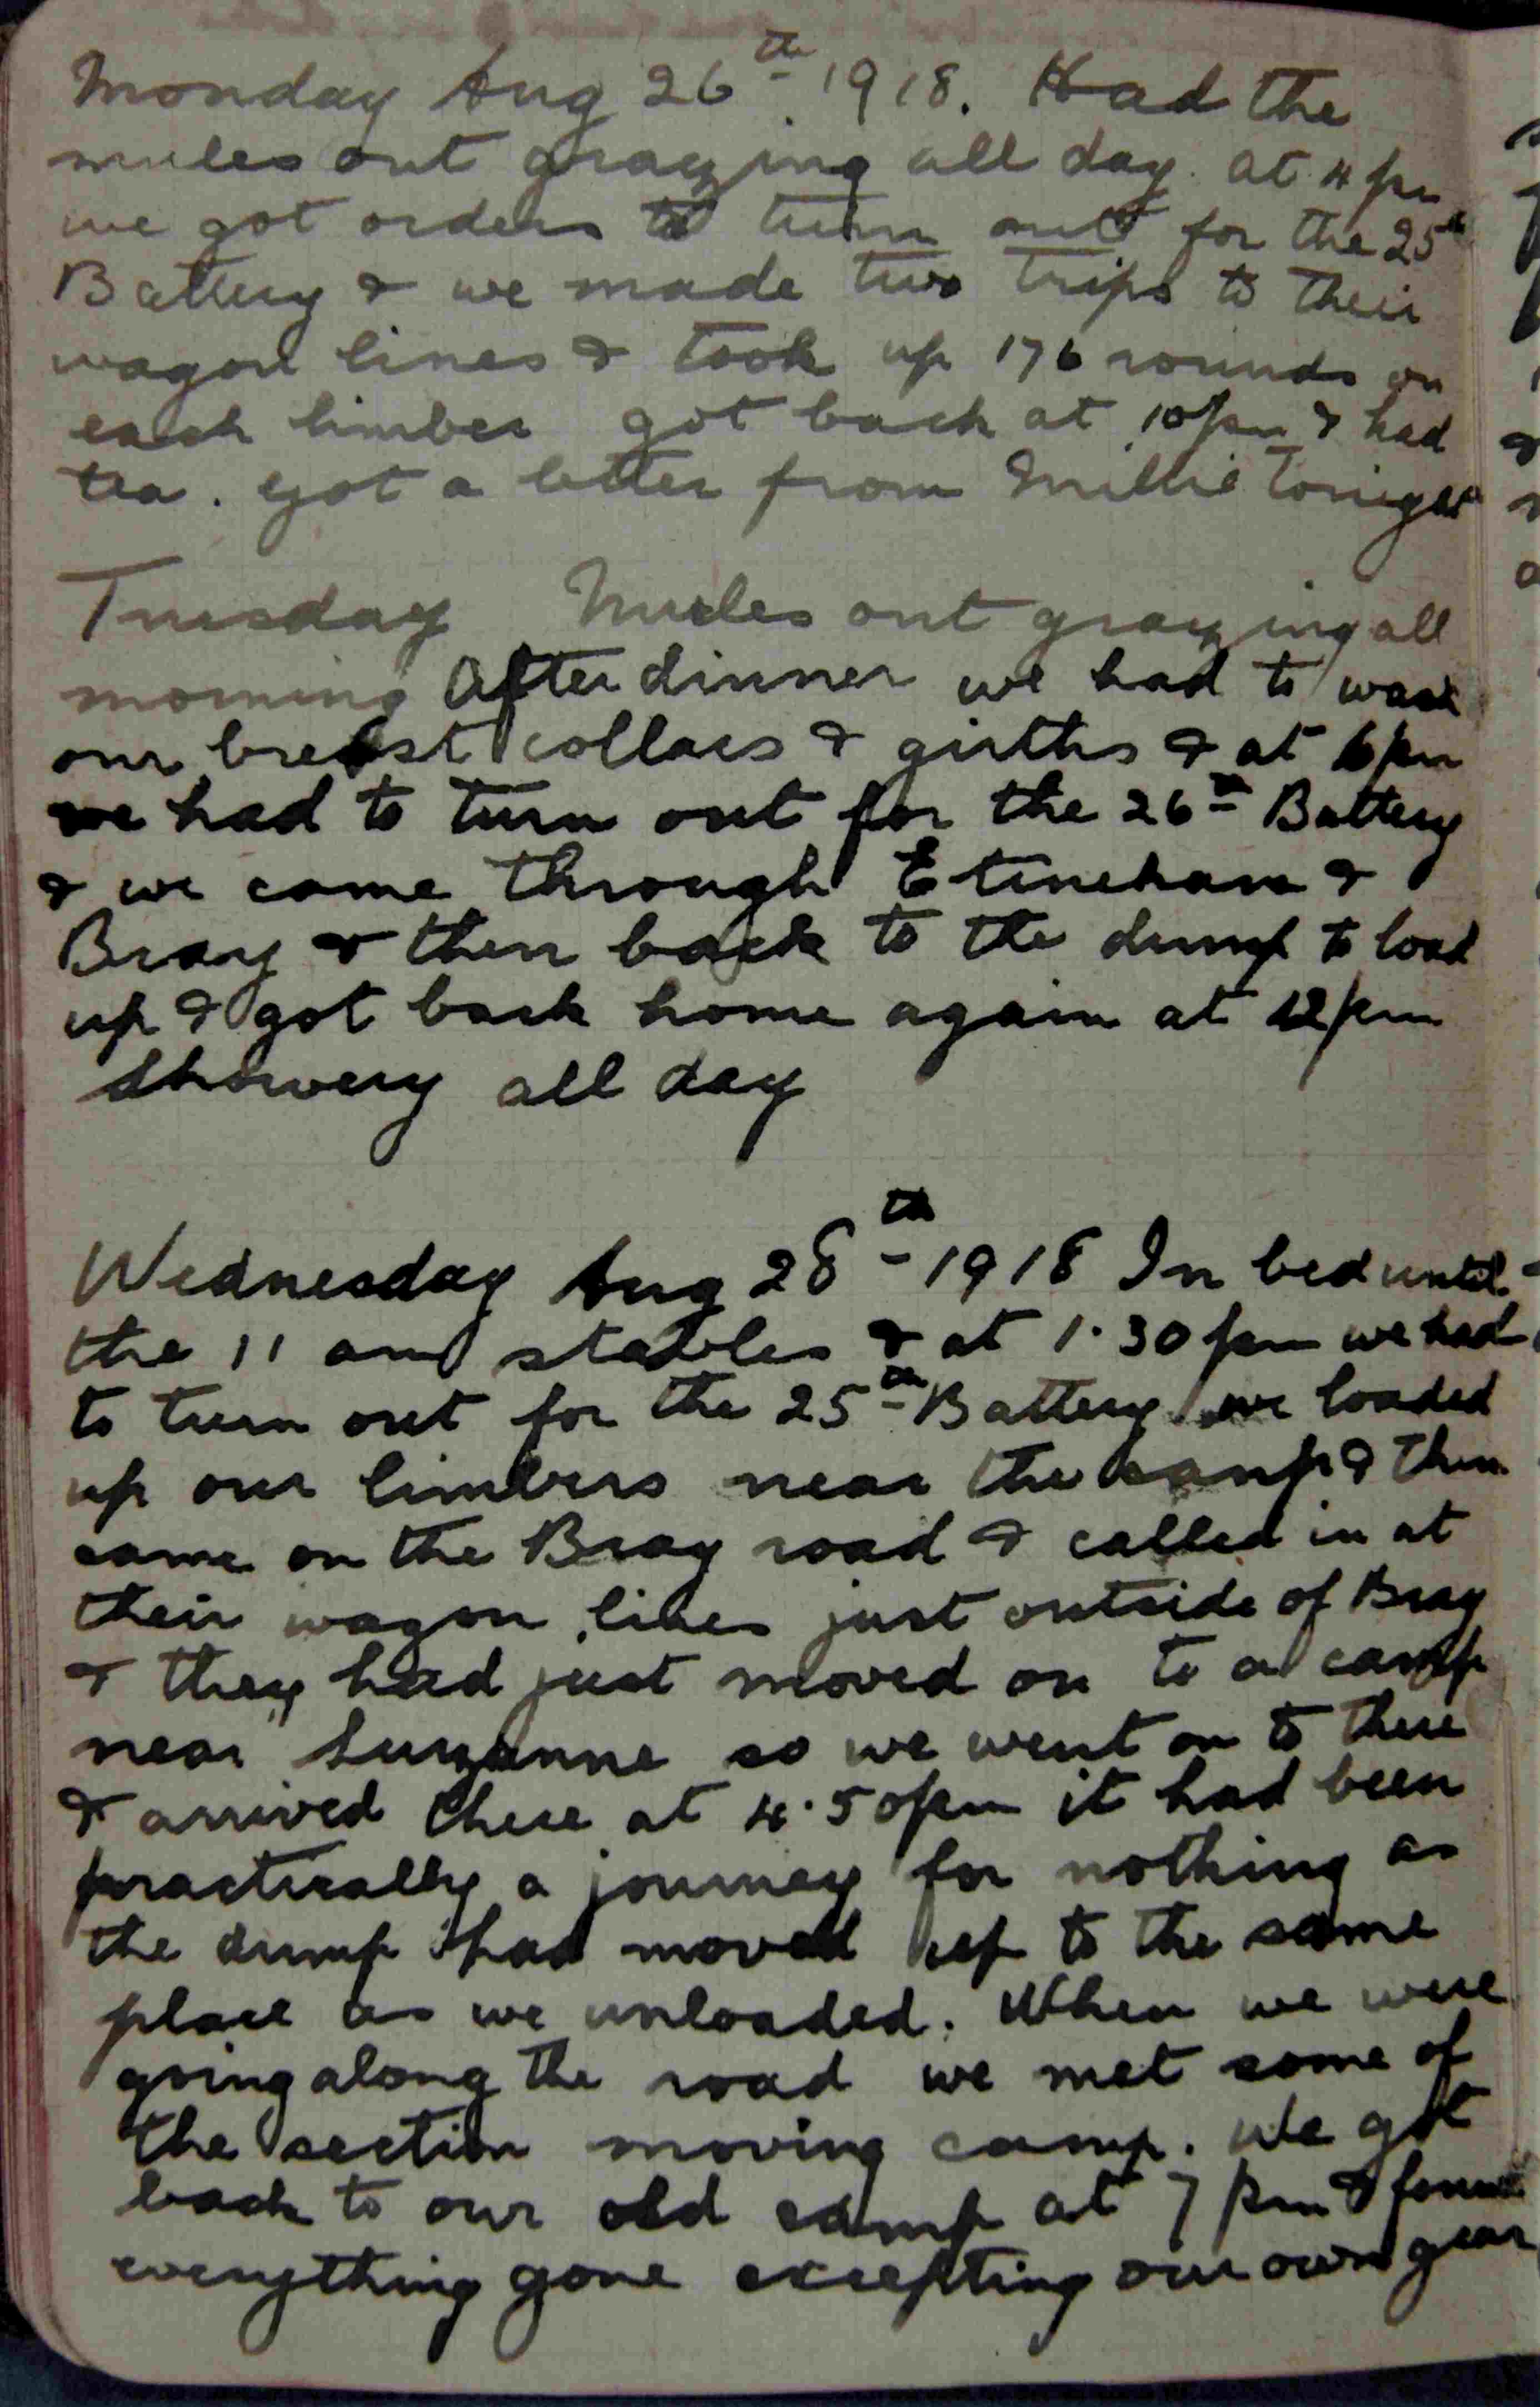 Monday Aug 26th 1918. Had the
mules out grazing all day. at 4 pm
we got orders to turn out for the 25th
Battery & we made two trips to their
wagon lines & took up 176 rounds on
each limber got back at 10 pm & had
tea. Got a letter from Millie tonight
Tuesday Mules out grazing all
morning After dinner we had to wash
our breast collars & girths & at 6 pm
we had to turn out for the 26th Battery
& we came through Etineham &
Bray & then back to the dump to load
up & got back home again at 12 pm
Showery all day
Wednesday Aug 28th 1918 In bed until
the 11 am stables & at 1.30 pm we had
to turn out for the 25th Battery we loaded
up our limbers near the camp & then
came on the Bray road & called in at
their wagon lines just outside of Bray
& they had just moved on to a camp
near Suzanne so we went on to there
& arrived there at 4.50 pm it had been
practically a journey for nothing as
the dump had moved up to the same
place as we unloaded. When we were
going along the road we met some of
the section moving camp. We got
back to our old camp at 7 pm & found
everything gone excepting our own gear